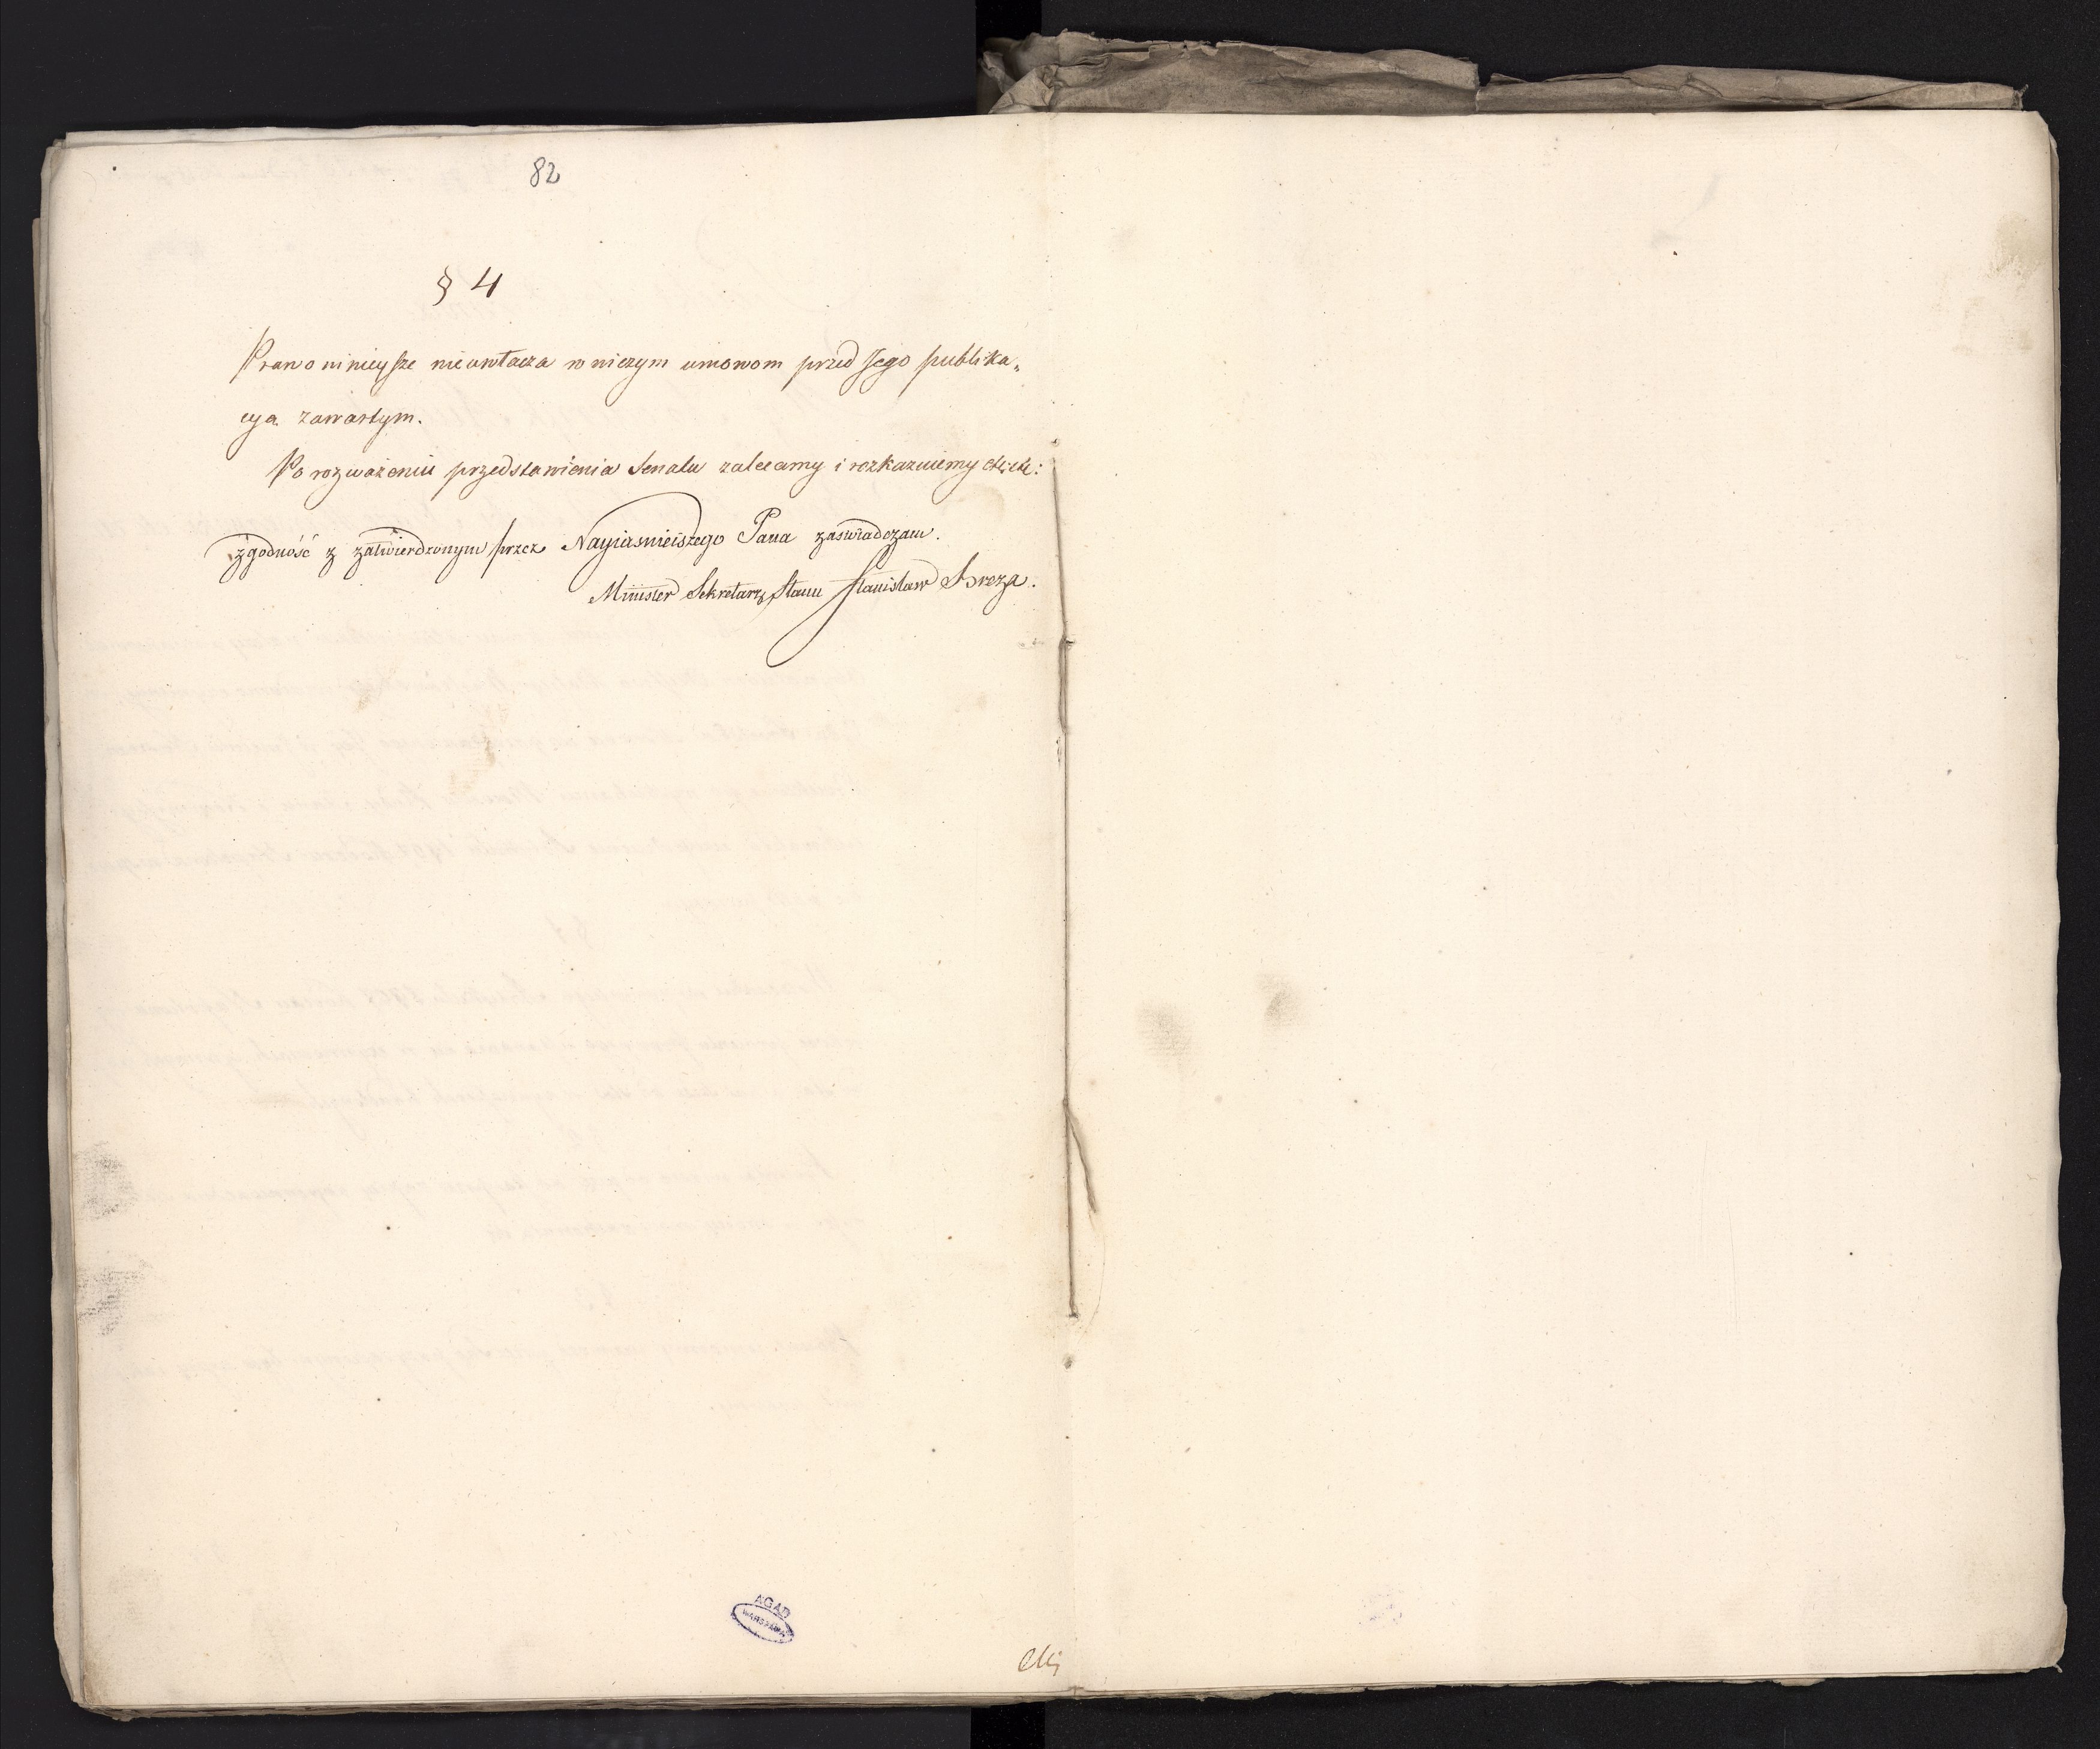 82
§ 4
Prawo ninieysze nieuwłacza w niczym umowom przed Jego publika„
cya zawartym.
Po rozważeniu przedstawienia Senatu zalecamy i rozkazuiemy etc: etc:
zgodność z zatwierdzonym przez Nayiasnieiszego Pana zaswiadczam.
Minister Sekretarz Stanu Stanisław Breza.
AGAD
WARSZAWA